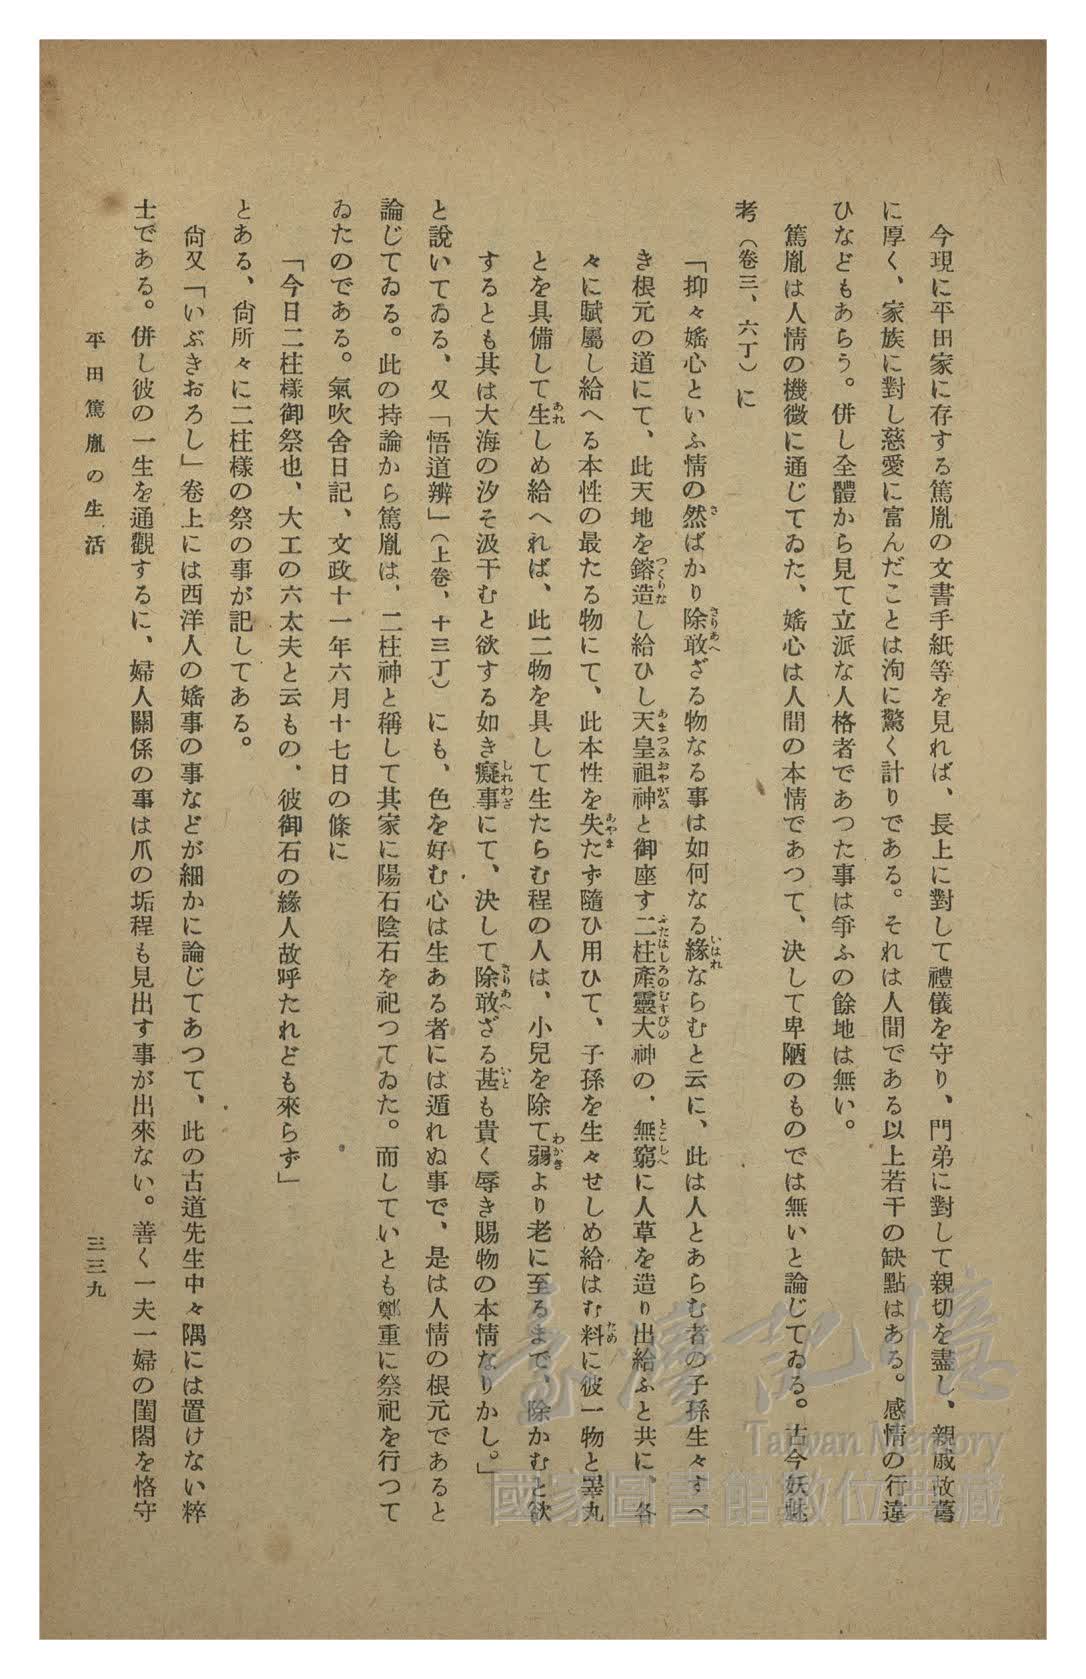 今現に平田家に存する篤胤の文書手紙等を見れば、長上に對して禮儀を守り、門弟に對して親切を盡し、親戚故舊
に厚く、家族に對し慈愛に富んだことは洵に驚く計りである。それは人間である以上若干の缺點はある。感情の行違
ひなどもあらう。併し全體から見て立派な人格者であつた事は爭ふの餘地は無い。
篤胤は人情の機微に通じてゐた、婬心は人間の本情であつて、決して卑陋のものでは無いと論じてゐる。古今妖魅
考（卷三、六丁）に
「抑々婬心といふ情の然ばかり除敢ざる物なる事は如何なる緣ならむと云に、此は人とあらむ者の子孫生々すべ
き根元の道にて、此天地を鎔造し給ひし天皇祖神と御座す二柱產靈大神の、無窮に人草を造り出給ふと共に、各
々に賦屬し給へる本性の最たる物にて、此本性を失たず隨ひ用ひて、子孫を生々せしめ給はむ料に彼一物と睪丸
とを具備して生しめ給へれば、此二物を具して生たらむ程の人は、小兒を除て弱より老に至るまで、除かむと欲
するとも其は大海の汐そ汲干むと欲する如き癡事にて、決して除敢ざる甚も貴く辱き賜物の本情なりかし。」
と說いてゐる、又「悟道辨」（上卷、十三丁）にも、色を好む心は生ある者には遁れぬ事で、是は人情の根元であると
論じてゐる。此の持論から篤胤は、二柱神と稱して其家に陽石陰石を祀つてゐた。而していとも鄭重に祭祀を行つて
ゐたのである。氣吹舍日記、文政十一年六月十七日の條に
「今日二柱樣御祭也、大工の六太夫と云もの、彼御石の緣人故呼たれども來らず」
とある、尙所々に二柱樣の祭の事が記してある。
尙又「いぶきおろし」卷上には西洋人の婬事の事などが細かに論じてあつて、此の古道先生中々隅には置けない粹
士である。併し彼の一生を通觀するに、婦人關係の事は爪の垢程も見出す事が出來ない。善く一夫一婦の閨閤を恪守
平田篤胤の生活
三三九
臺灣記憶
Taiwan Memory
國家圖書館數位典藏